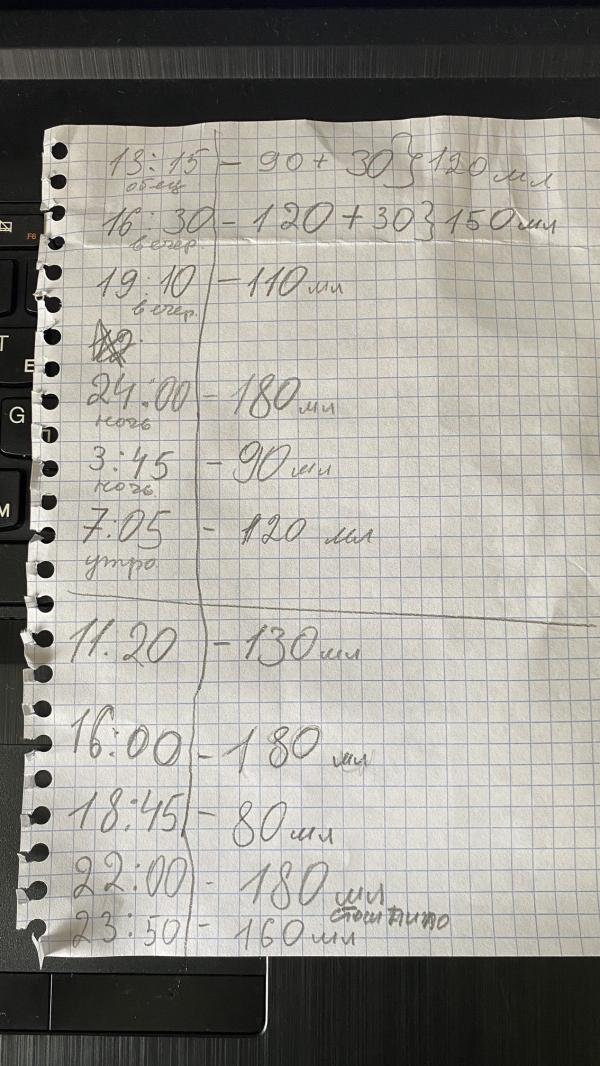 13:15 - 90 + 30 } 120 мл
обед
16:30 - 120 + 30 } 150 мл
вечер
19:10 - 110 мл
вечер.
24:00 - 180 мл
ночь
3:45 - 90 мл
ночь.
7:05 - 120 мл
утро
11.20 - 130 мл
16:00 - 180 мл
18:45 - 80 мл
22:00 - 180 мл
23:50 - 160 мл
F6
T
E
G
M